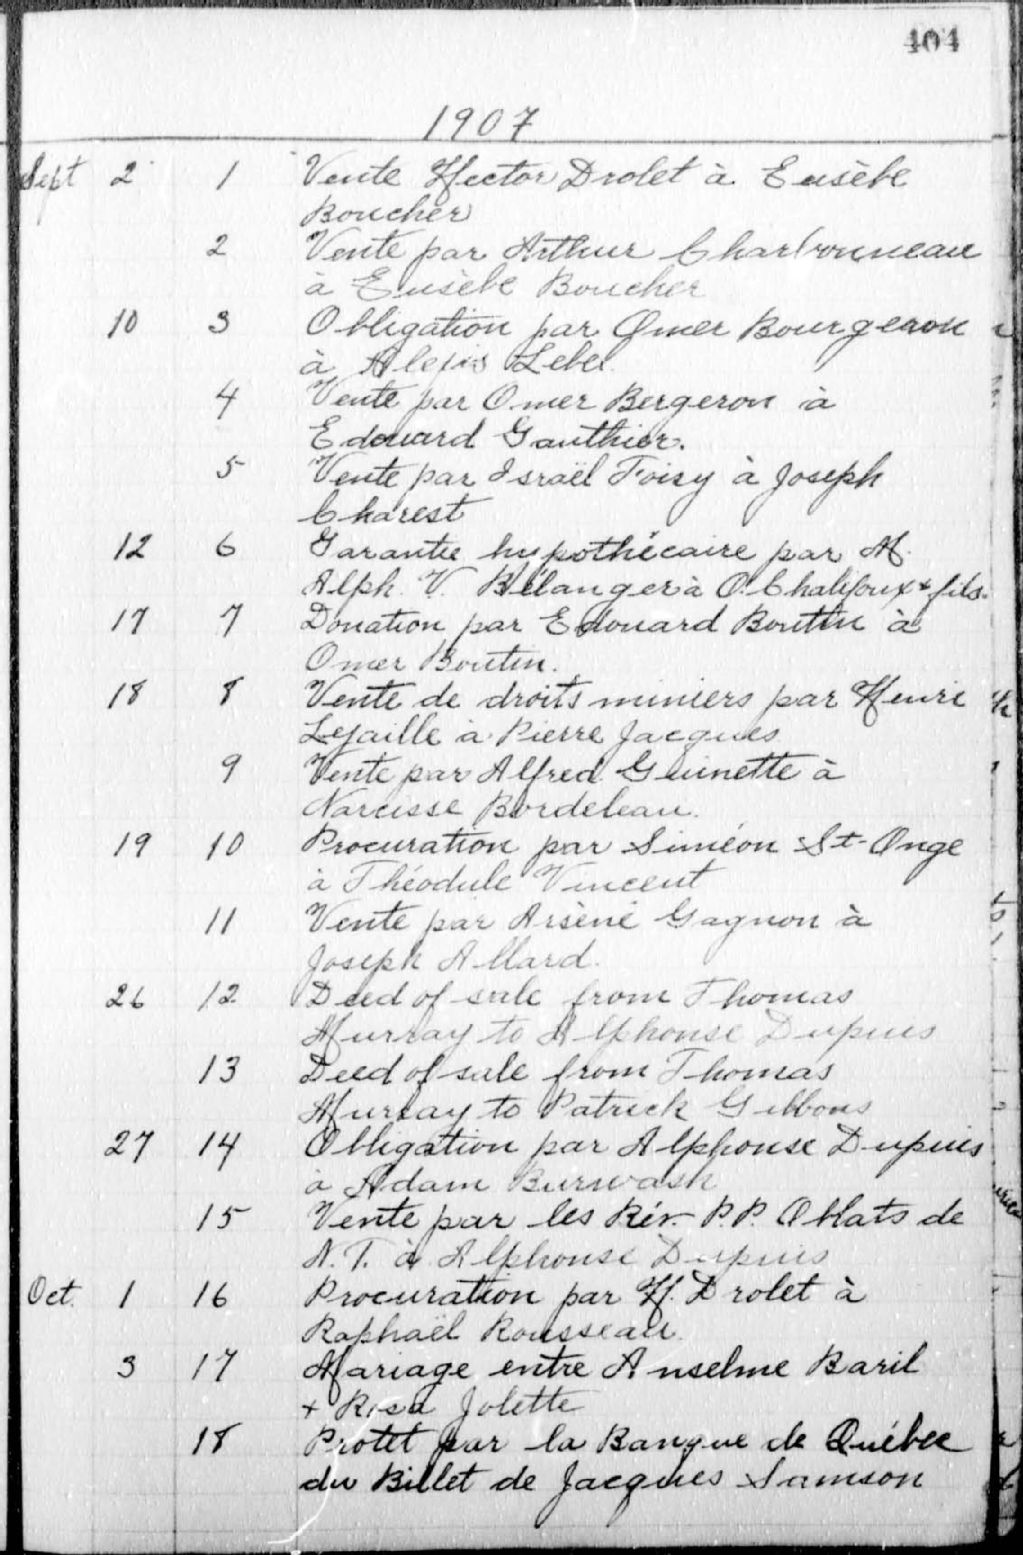 404
1907
Sept 2 1 Vente Hector Drolet à Eusèbe
Boucher
2 Vente par Arthur Charbonneau
à Eusèbe Boucher
10 3 Obligation par Omer Bourgeron
à Alexis Lebel
4 Vente par Omer Bergeron à
Edouard Gauthier.
5 Vente par Israël Foisy à Joseph
Charest
12 6 Garantie hypothécaire par M.
Alph. V. Bélanger à O. Chalifoux + fils.
17 7 Donation par Edouard Boutin à
Omer Boutin.
18 8 Vente de droits miniers par Henri
Lejaille à Pierre Jacques
9 Vente par Alfred Guinette à
Narcisse Bordeleau.
19 10 Procuration par Siméon St-Onge
à Théodule Vincent
11 Vente par Arsène Gagnon à
Joseph Allard.
26 12 Deed of sale from Thomas
Murray to Alphonse Dupuis
13 Deed of sale from Thomas
Murray to Patrick Gibbons
27 14 Obligation par Alphonse Dupuis
à Adam Burwash
15 Vente par les Rév. P.P. Oblats de
N.T. à Alphonse Dupuis
Oct. 1 16 Procuration par H. Drolet à
Raphaël Rousseau.
3 17 Mariage entre Anselme Baril
+ Rosa Jolette
18 Protêt par la Banque de Québec
du Billet de Jacques Samson